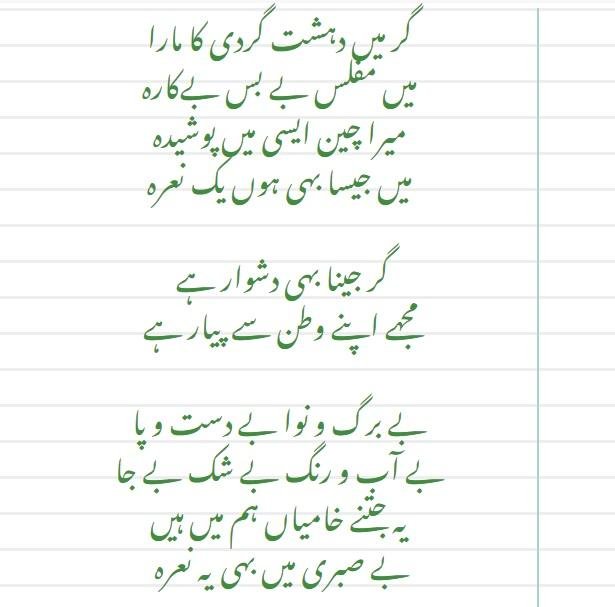 گر میں دہشت گردی کا مارا
میں مفلس بے بس بےکارہ
میرا چین ایسی میں پوشیدہ
میں جیسا بہی ہوں یک نعرہ
گر جینا بہی دشوار ہے
مجہے اپنے وطن سے پیار ہے
بے برگ و نوا بے دست و پا
بے آب و رنگ بے شک بے جا
یہ جتنے خامیاں ہم میں ہیں
بے صبری میں بہی یہ نعرہ